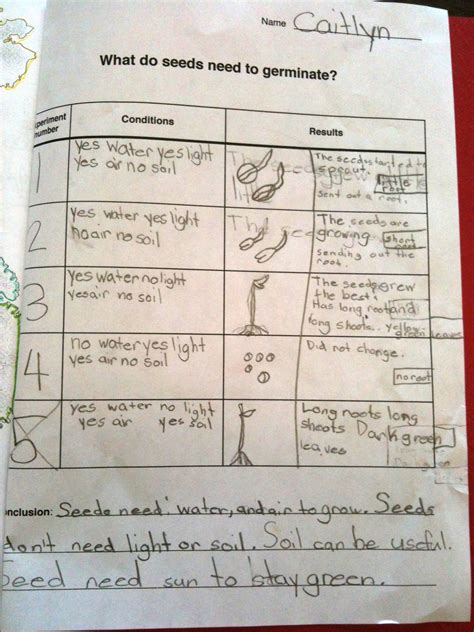 Name Caitlyn
What do seeds need to germinate?
Experiment number
Conditions
Results
1
yes water yes light
yes air no soil
The seeds started to
sprout.
little
root
sent out a root.
2
yes water yes light
no air no soil
The seeds are
growing short
root
sending out the
root.
3
yes water no light
yes air no soil
The seeds grew
the best.
Has long root and
long shoots. yellow
green leaves
4
no water yes light
yes air no soil
Did not change.
no root
5
yes water no light
yes air yes soil
Long roots long
shoots Dark green
leaves
nclusion: Seeds need water, and air to grow. Seeds
don't need light or soil. Soil can be useful.
Seed need sun to stay green.